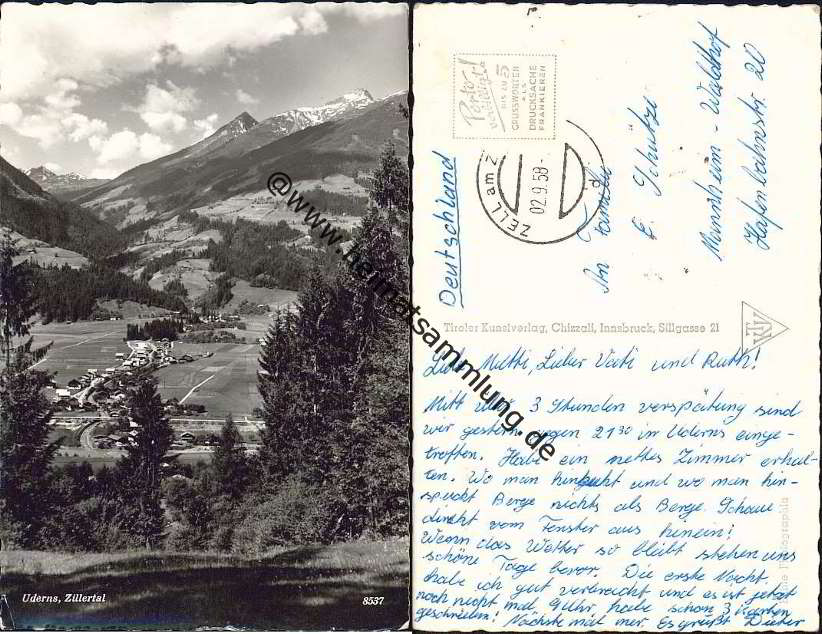 Uderns, Zillertal
8537
@www.heimatsammlung.de
Porto
verbilligt!
BIS ZU 5
GRUSSWORTEN
ALS
DRUCKSACHE
FRANKIEREN
ZELL am Z
02.9.58-
Deutschland
An Familie
E. Schütze
Mannheim - Waldhof
Hafenbahnstr 20
Tiroler Kunstverlag, Chizzali, Innsbruck, Sillgasse 21
TKV
Liebe Mutti, Lieber Vati und Ruth!
Mit 3 Stunden verspätung sind
wir gestern gegen 21³⁰ in Uderns einge-
troffen. Habe ein nettes Zimmer erhal-
ten. Wo man hin und wo man hin-
spuckt Berge nichts als Berge. Schaue
direkt vom Fenster aus hinein!
Wenn das Wetter so bleibt stehen uns
schöne Tage bevor. Die erste Nacht
habe ich gut verbracht und es ist jetzt
noch nicht mal 9 Uhr, habe schon 3 Karten
geschrieben! Nächste mal mer. Es grüßt Dieter